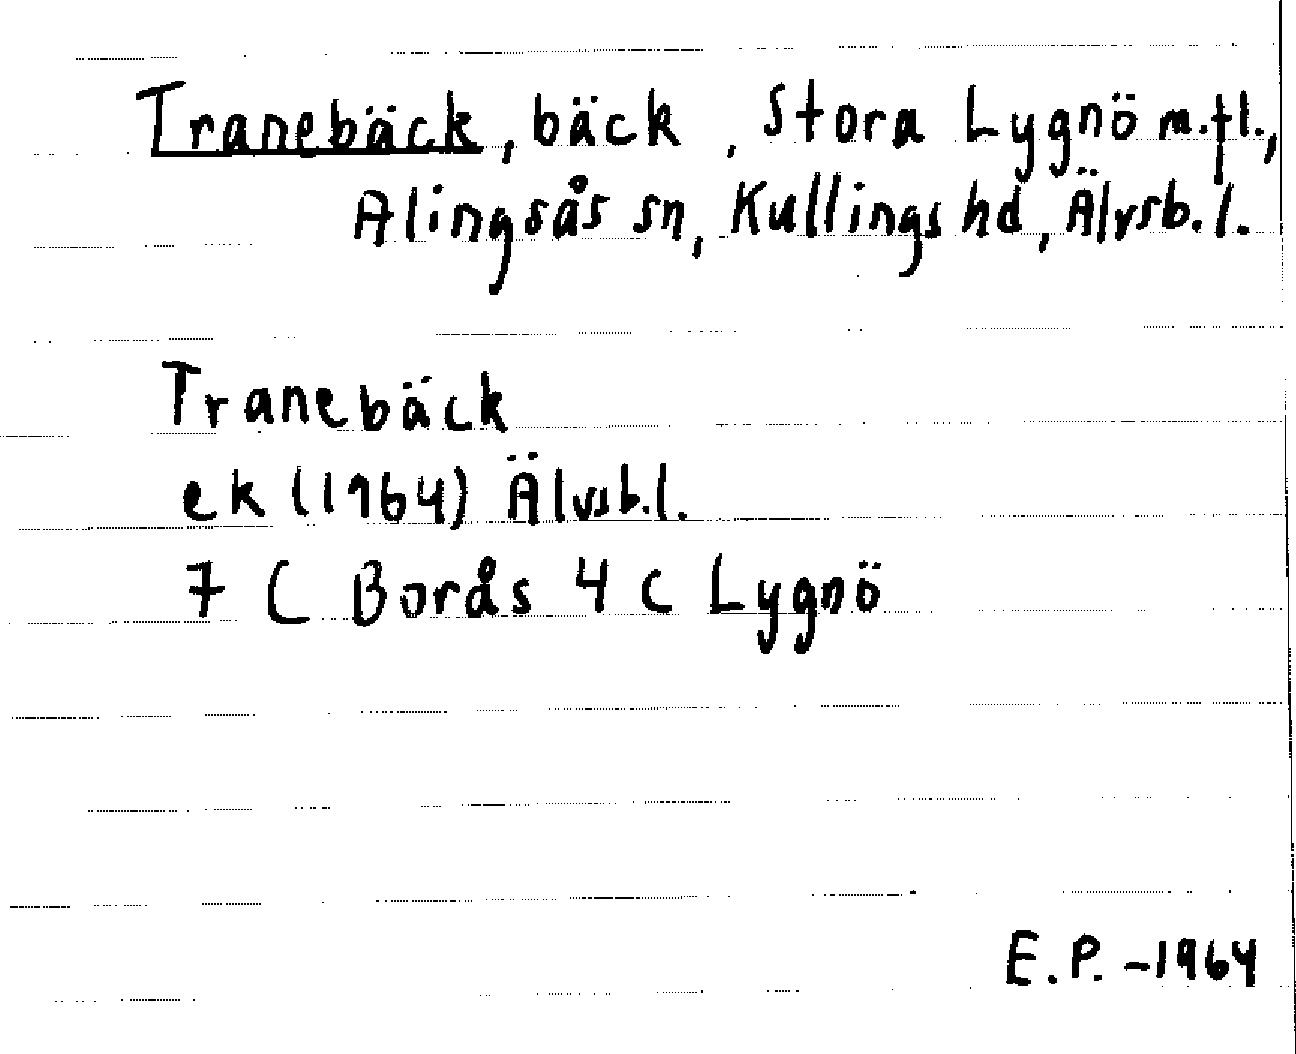 Tranebäck, bäck, Stora Lygnö m.fl.,
Alingsås sn, Kullings hd, Älvsb.l.
Tranebäck
ek (1964) Älvsb.l.
7 C Borås 4 c Lygnö
E.P. -1964